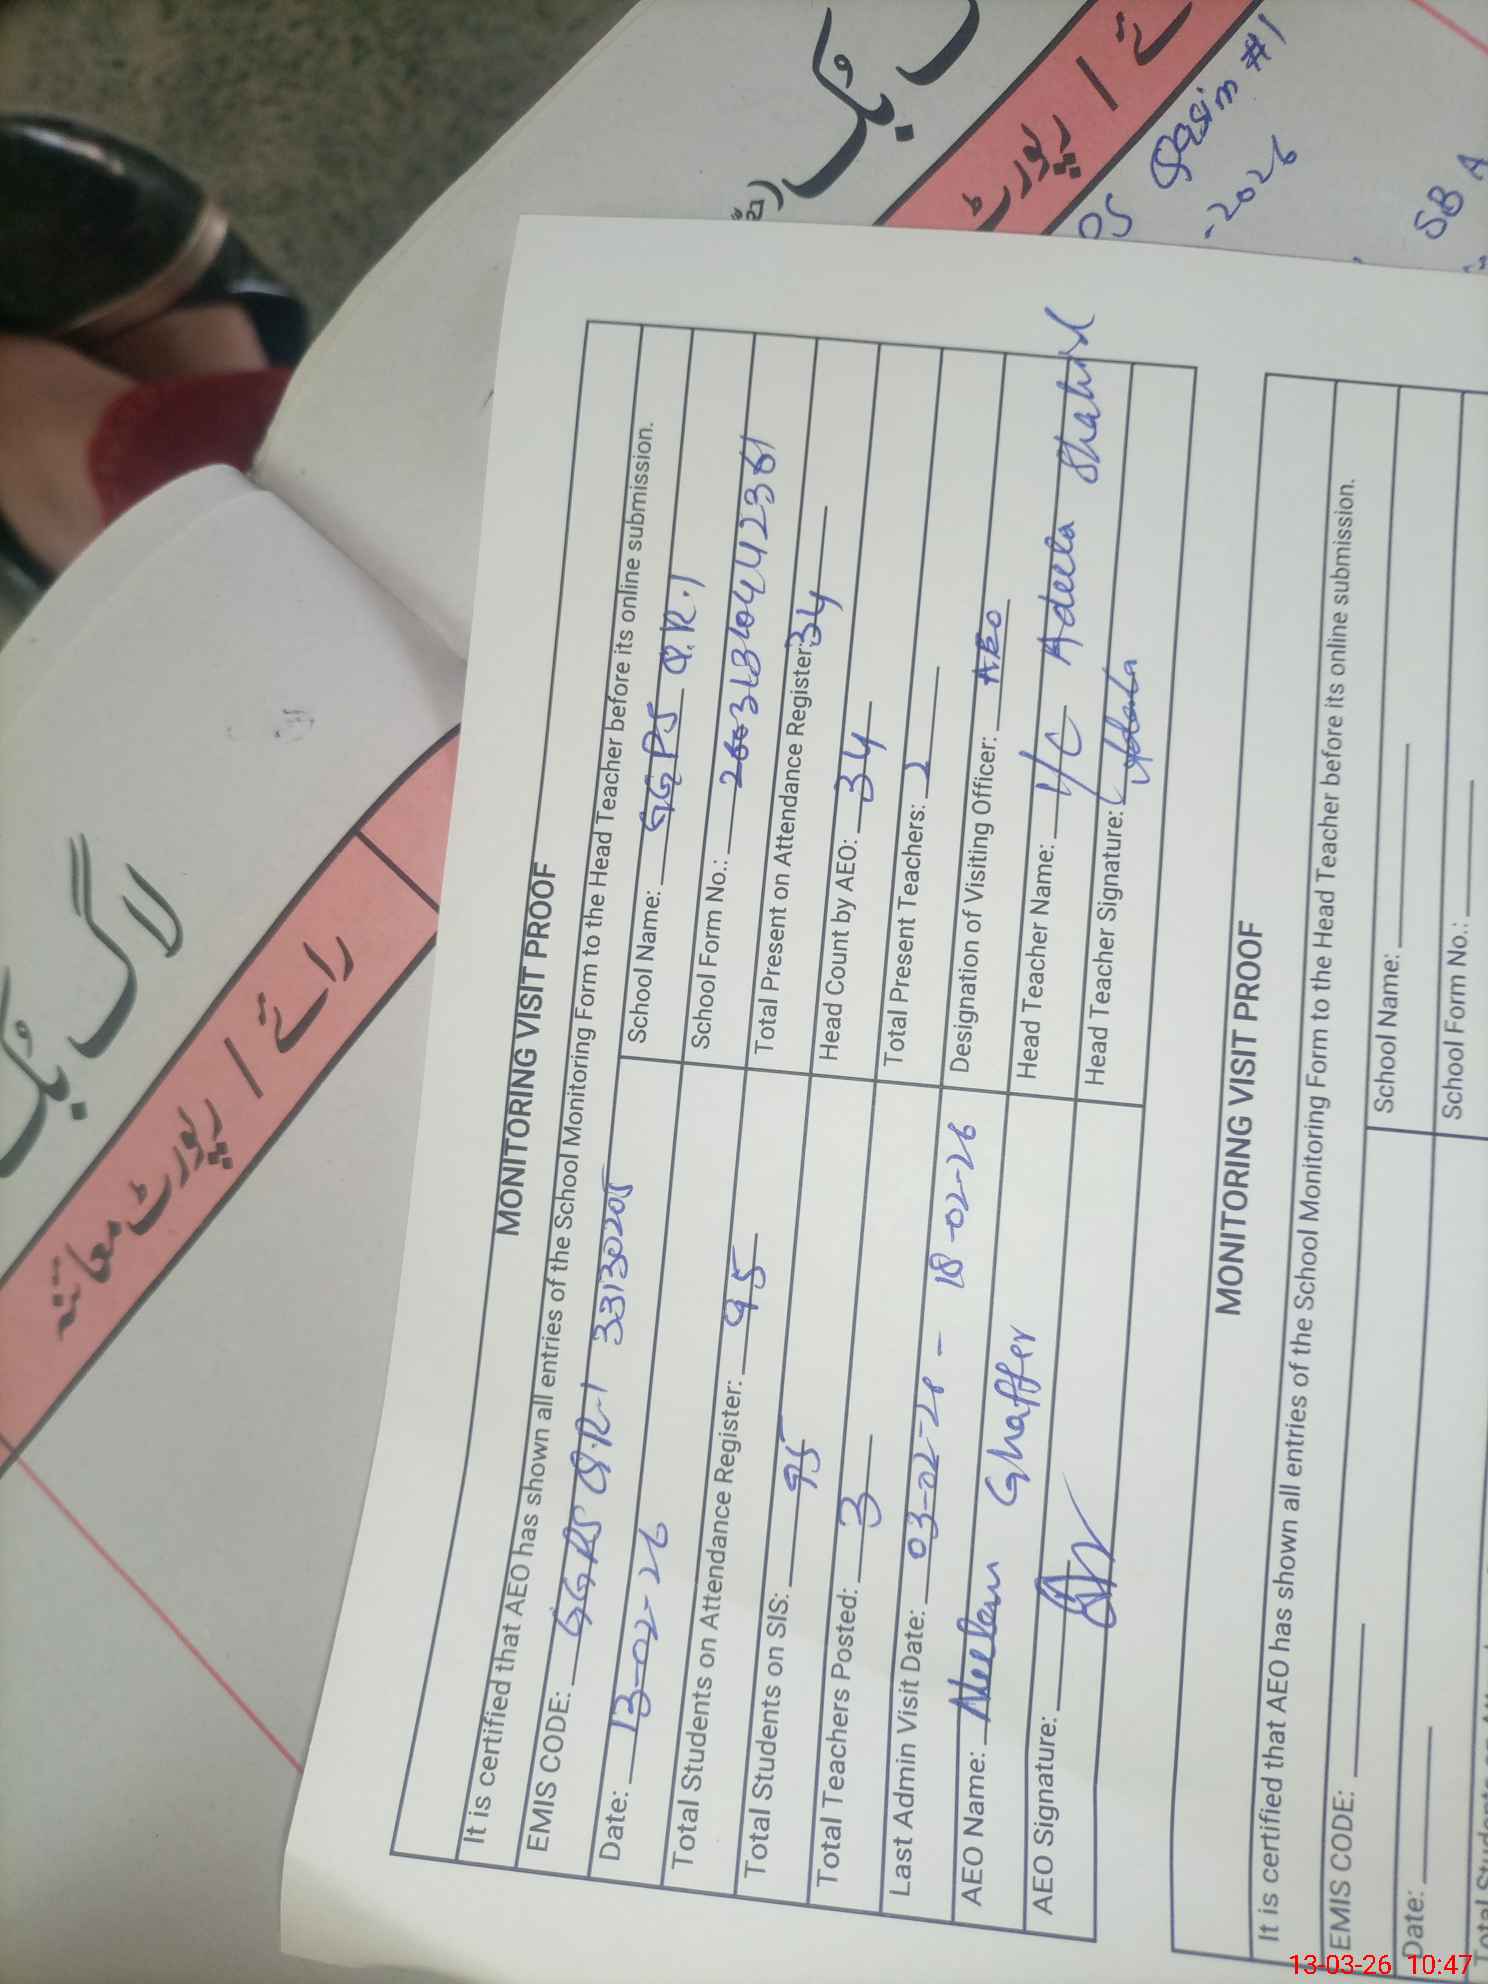 لاگ بک
رائے / رپورٹ معائنہ
بک
رپورٹ / ئے
PS Qasim #1
-2026
SB A
MONITORING VISIT PROOF
It is certified that AEO has shown all entries of the School Monitoring Form to the Head Teacher before its online submission.
EMIS CODE: GGPS Q.R.1 33130205
School Name: GGPS Q.R.1
Date: 13-02-26
School Form No.:
Total Students on Attendance Register: 95
Total Present on Attendance Register: 34
Total Students on SIS: 95
Head Count by AEO: 34
Total Teachers Posted: 3
Total Present Teachers: 2
Last Admin Visit Date: 03-02-26 - 18-02-26
Designation of Visiting Officer: AEO
AEO Name: Neelam Ghaffer
Head Teacher Name: I/C Adeela Shahid
AEO Signature:
Head Teacher Signature: Adeela
MONITORING VISIT PROOF
It is certified that AEO has shown all entries of the School Monitoring Form to the Head Teacher before its online submission.
EMIS CODE:
School Name:
Date:
School Form No.:
13-03-26 10:47